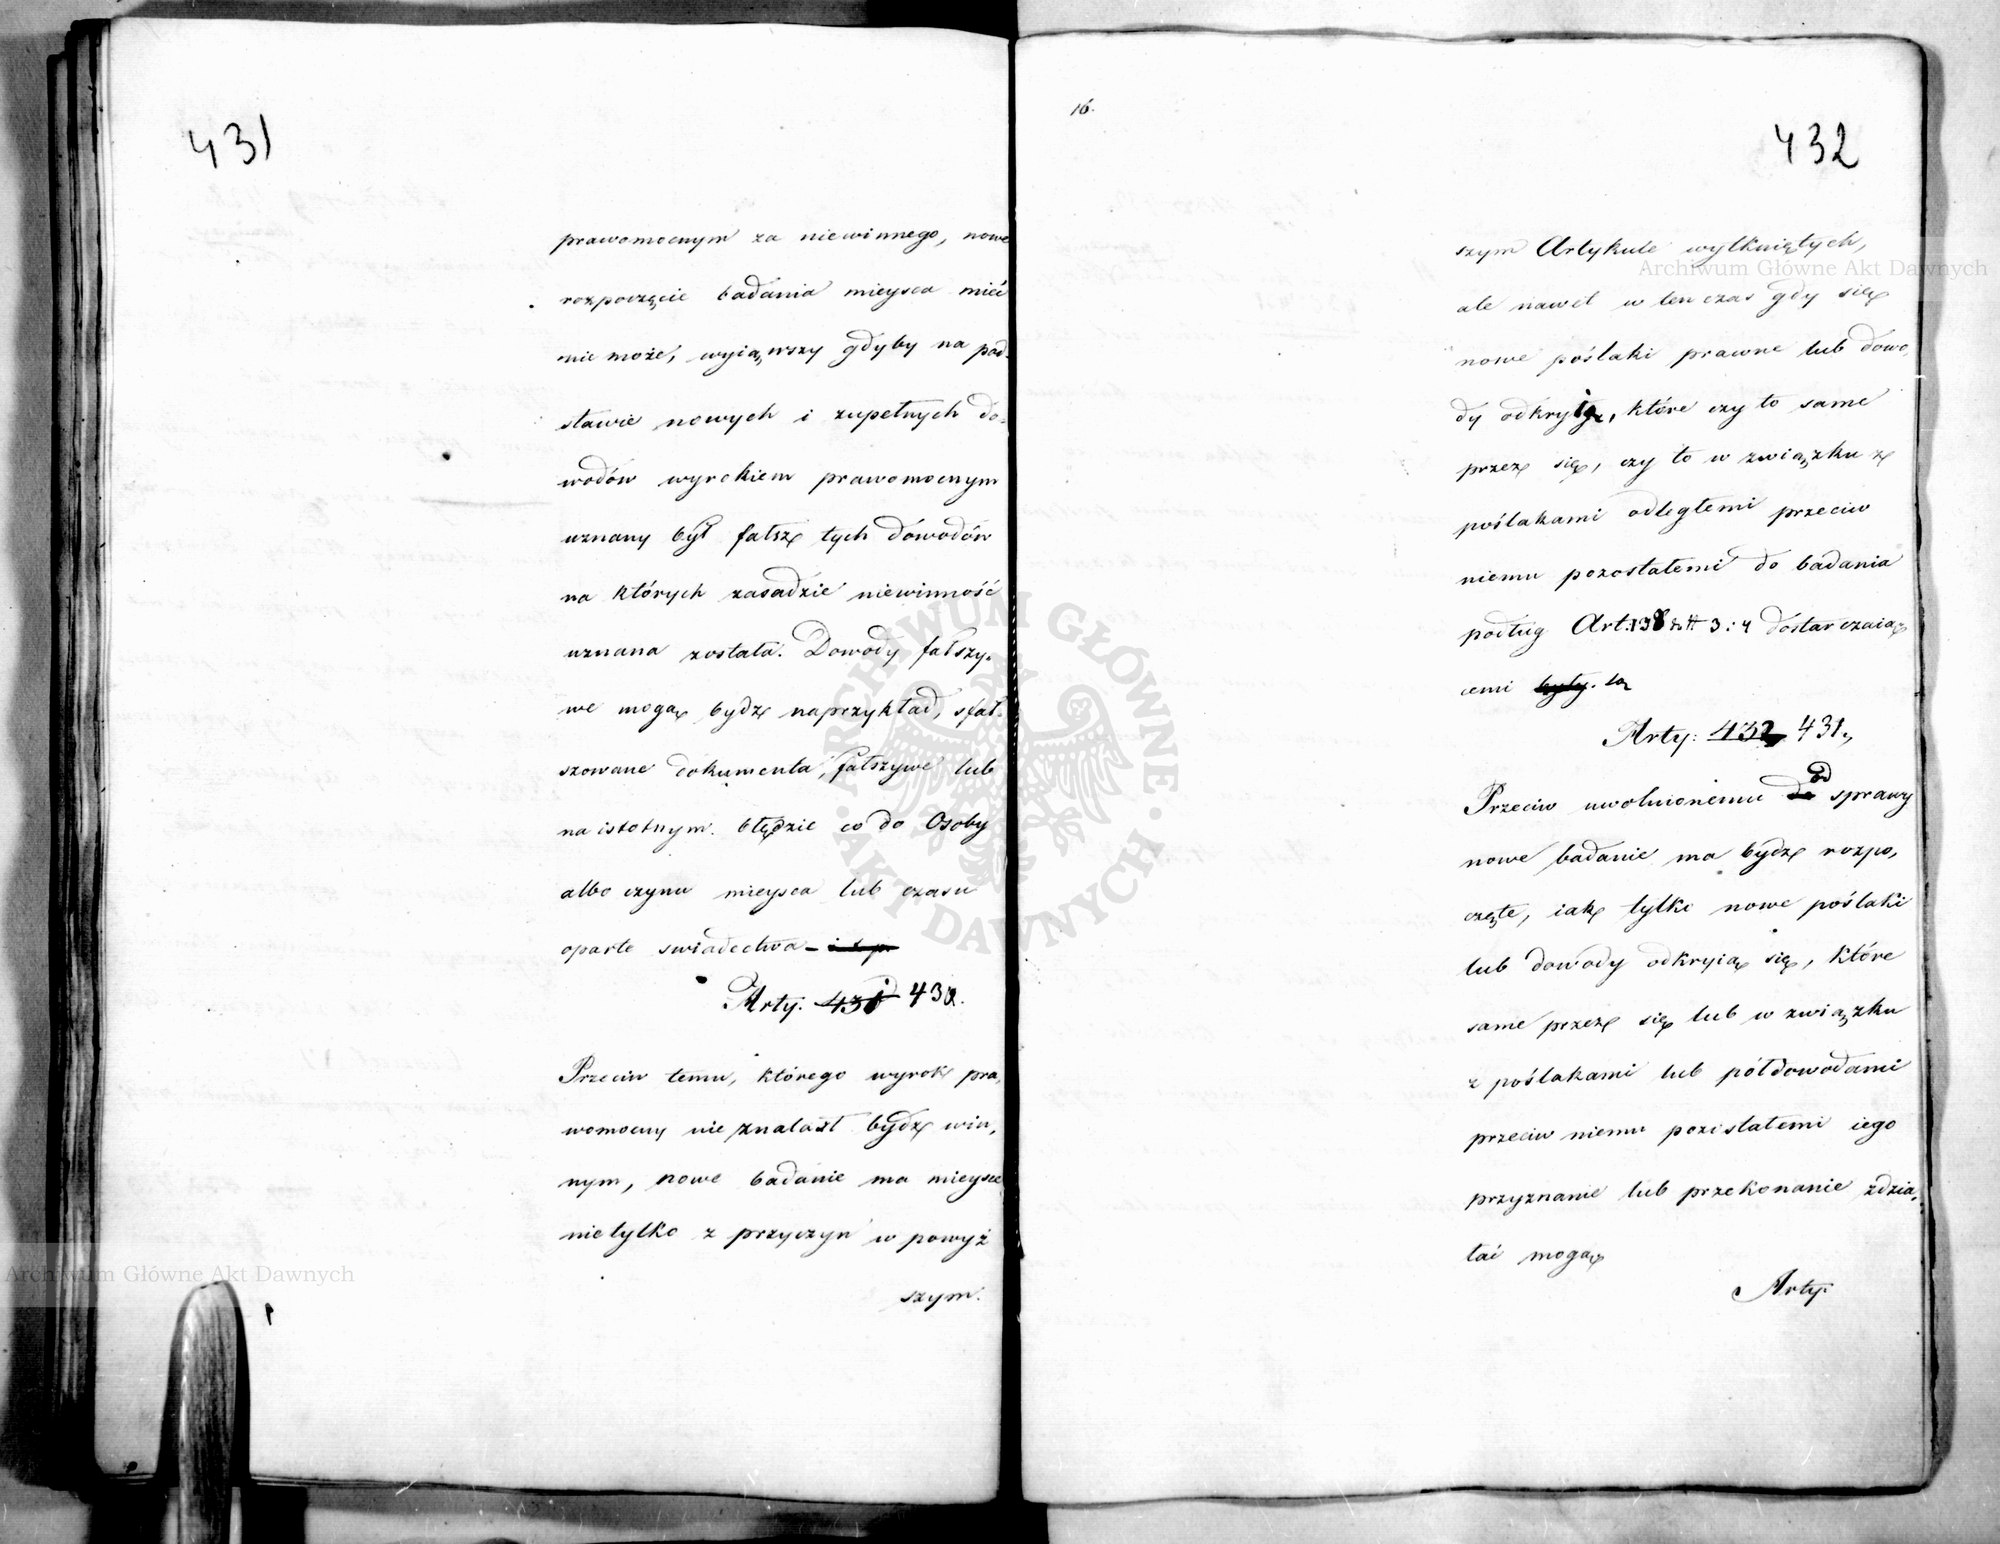 431
prawomocnym za niewinnego, nowe
rozpoczęcie badania mieysca mieć
nie może, wyiąwszy gdyby na pod-
stawie nowych i zupełnych do-
wodów wyrokiem prawomocnym
uznany był fałsz tych dowodów
na których zasadzie niewinność
uznana została. Dowody fałszy-
we mogą bydź naprzykład, sfał-
szowane dokumenta, fałszywe lub
na istotnym błędzie co do Osoby
albo czynu mieysca lub czasu
oparte swiadectwa
Arty: 431 430.
Przeciw temu, którego wyrok pra-
womocny nie znalazł bydź win-
nym, nowe badanie ma mieysce
nietylko z przyczyn w powyż
szym.
16.
432
szym Artykule wytkniętych,
ale nawet w ten czas gdy się
nowe poślaki prawne lub dowo-
dy odkryią, które czy to same
przez się, czy to w związku z
poślakami odległemi przeciw
niemu pozostałemi do badania
podług Art: 138 3:4 dostarczaią
cemi były. są
Arty: 432 431.
Przeciw uwolnionemu do od sprawy
nowe badanie ma bydź rozpo-
częte, iak tylko nowe poślaki
lub dowody odkryią się, które
same przez się lub w związku
z poślakami lub półdowodami
przeciw niemu pozostałemi iego
przyznanie lub przekonanie zdzia-
łać mogą
Arty:
Archiwum Główne Akt Dawnych
Archiwum Główne Akt Dawnych
ARCHIWUM GŁÓWNE · AKT DAWNYCH ·